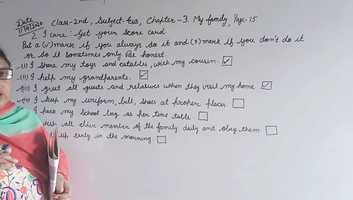 Date
Class-2nd, Subject-Eng, Chapter-3. My family, Page-15
2 I care. Get your score card
Put a (✓) mark if you always do it and (×) mark if you don't do it
or do it sometimes only. Be honest.
(i) I share my toys and eatables, with my cousin ☑
(ii) I help my grandparents. ☑
(iii) I greet all guests and relatives when they visit my home ☑
(iv) I keep my uniform, belt, shoes at proper place ☐
pack my school bag as per time table ☐
all elder member of the family daily and obey them ☐
up early in the morning ☐